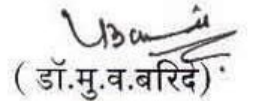 ( डॉ.मु.व.बरिदे)